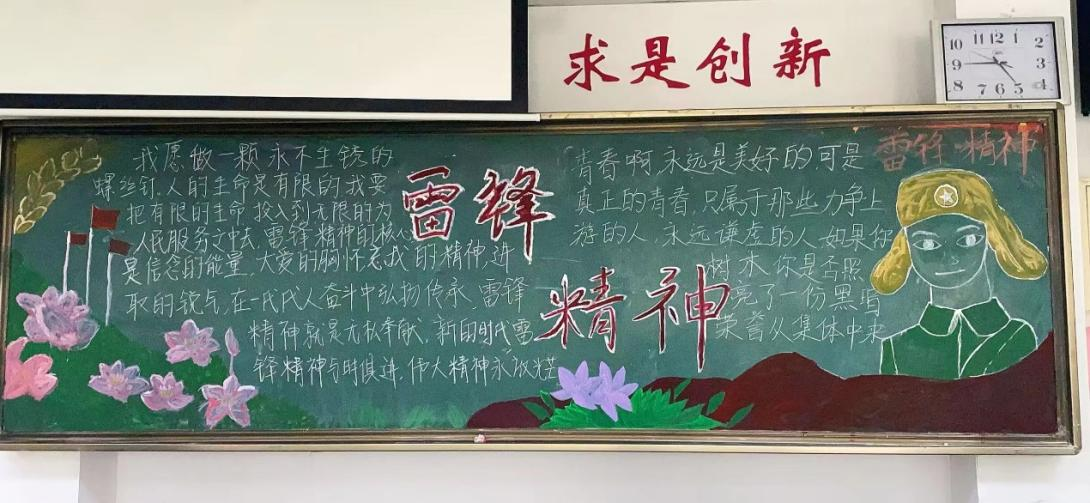 求是创新
10 11 12 1 2
9 3
8 7 6 5 4
雷锋·精神
雷锋
精神
我愿做一颗永不生锈的
螺丝钉.人的生命是有限的.我要
把有限的生命投入到无限的为
人民服务之中去.雷锋精神的核心
是信念的能量.大爱的胸怀忘我的精神,进
取的锐气,在一代代人奋斗中弘扬传承.雷锋
精神就是无私奉献.新的时代雷
锋精神与时俱进.伟大精神永放光芒
青春啊,永远是美好的,可是
真正的青春,只属于那些力争上
游的人,永远谦虚的人.如果你
树木,你是否照
亮了一份黑暗
荣誉从集体中来